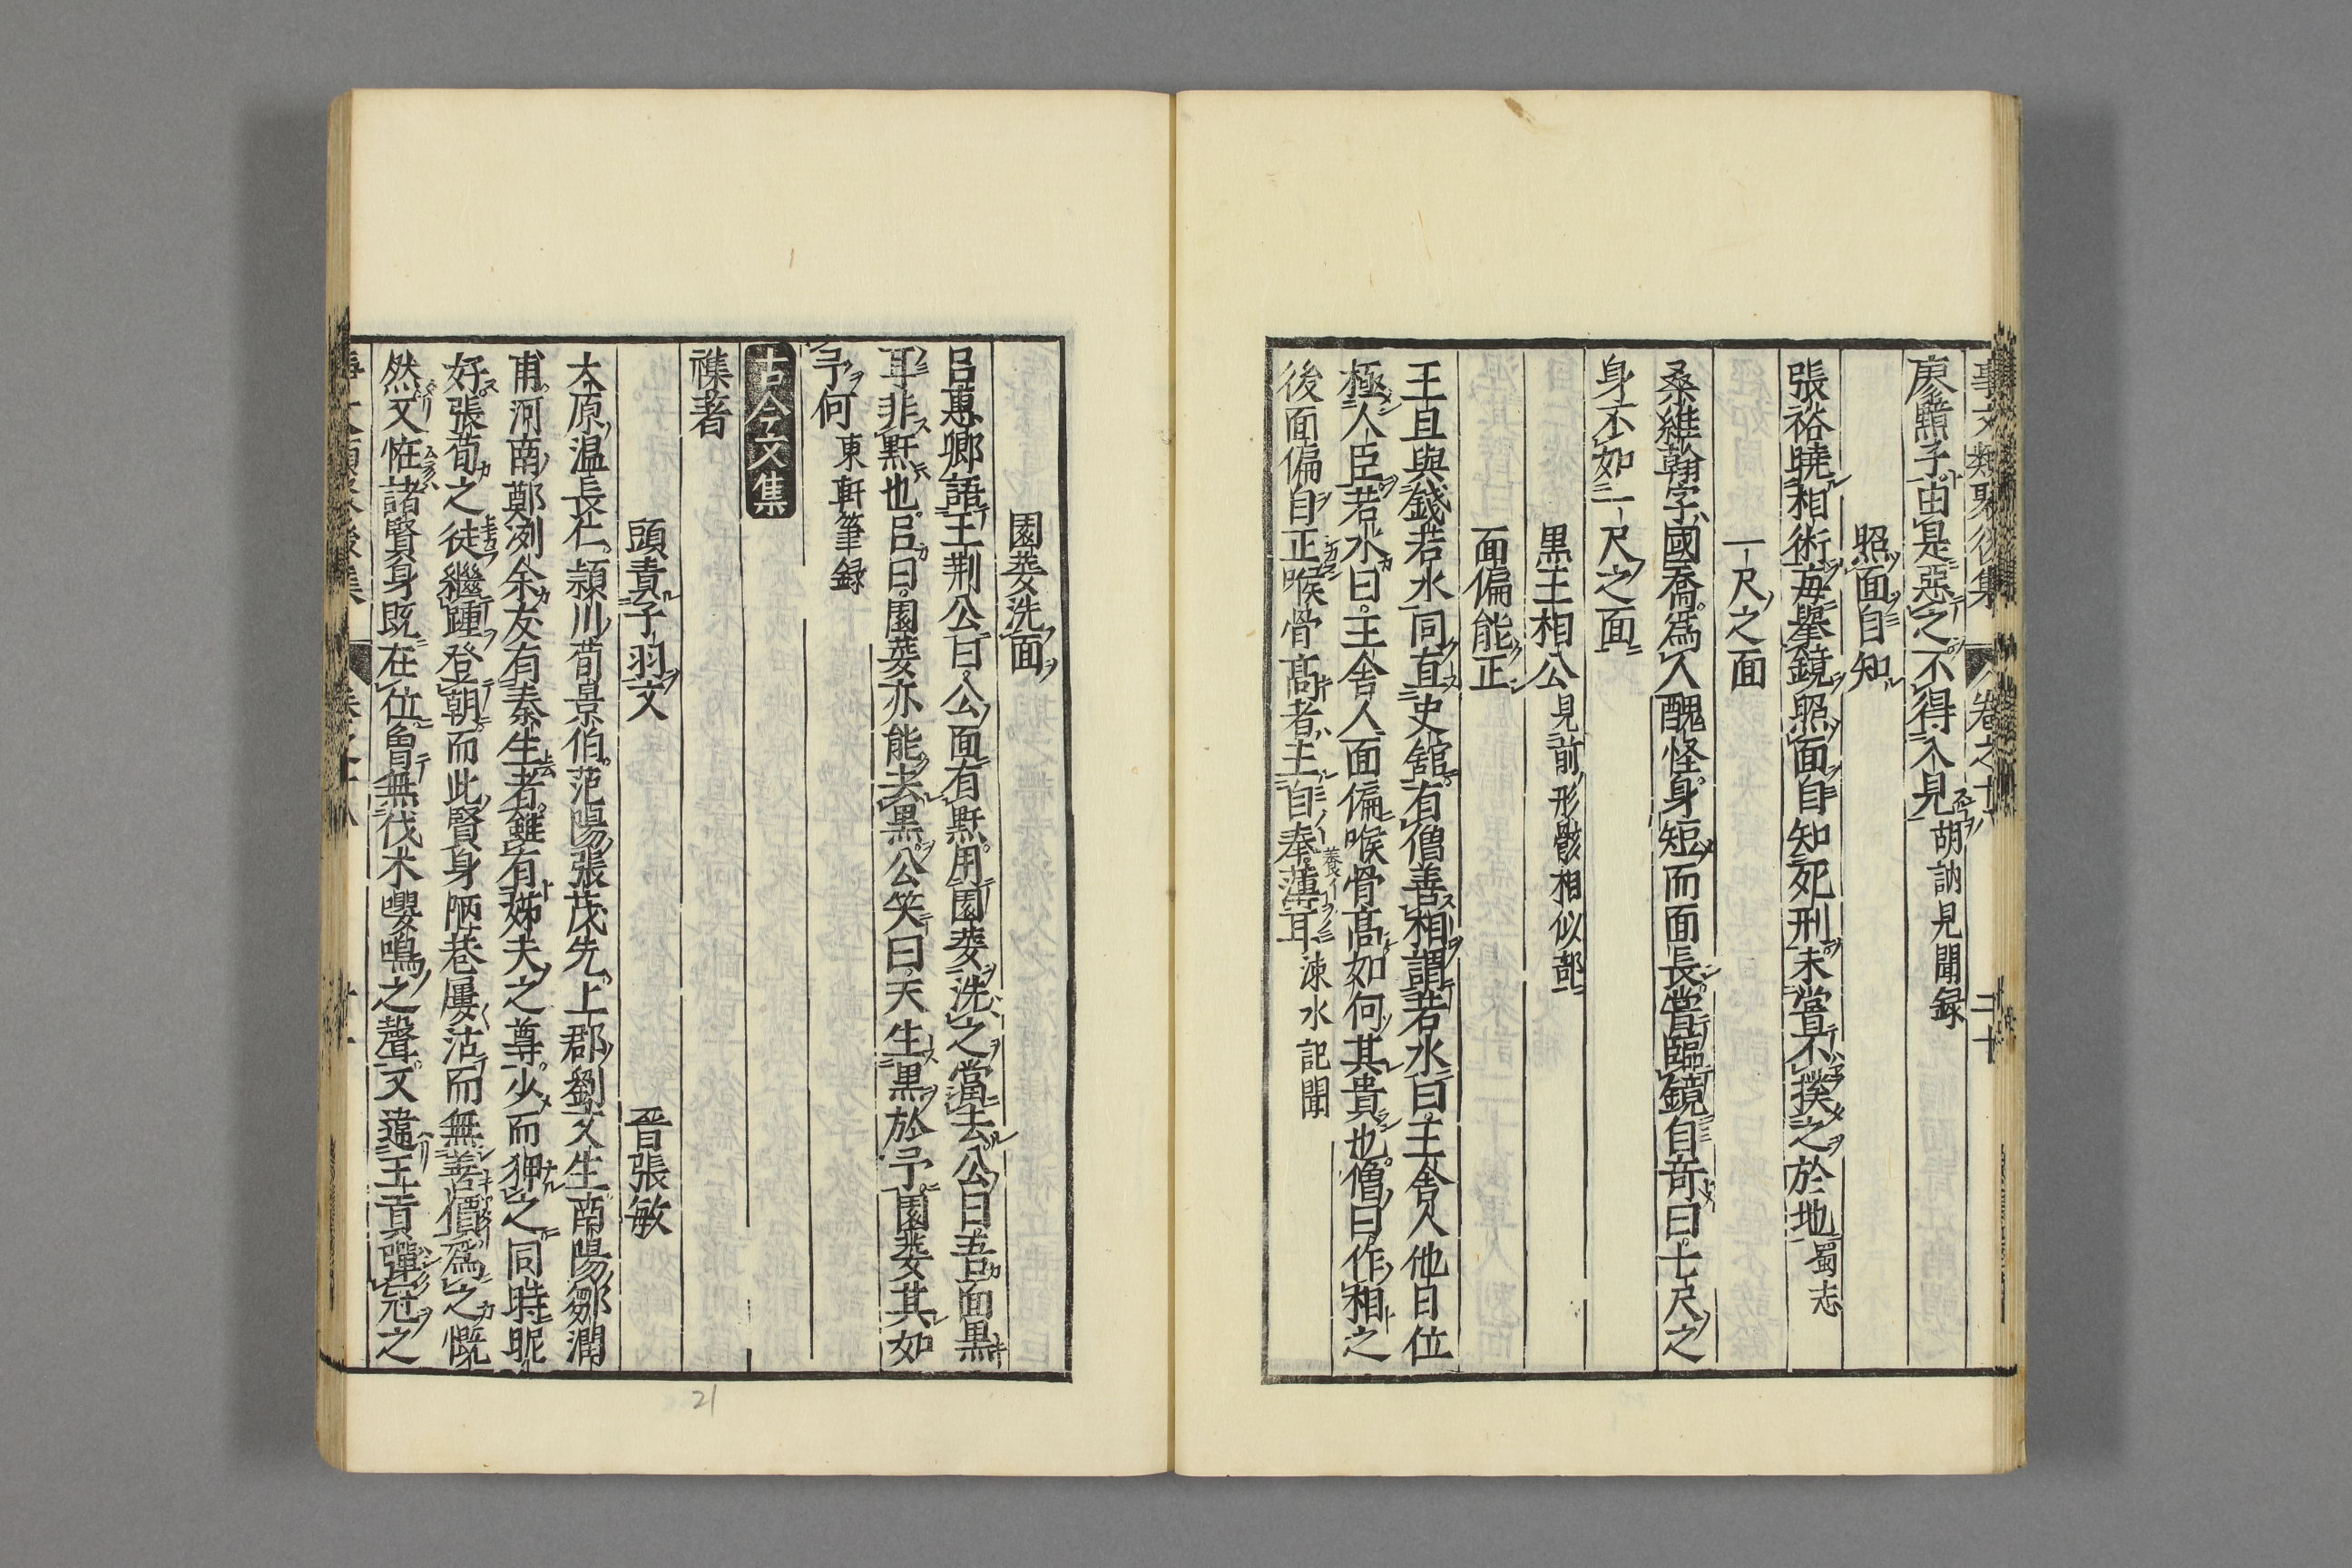 事文類聚後集　卷之十八　二十
廖黯子由是惡之不得入見胡訥見聞録
照面自知
張裕曉相術每舉鏡照面自知死刑未嘗不撲之於地蜀志
一尺之面
桑維翰字國喬爲人醜怪身短而面長嘗臨鏡自竒曰七尺之
身不如一尺之面
黒王相公見前形骸相似部
面偏能正
王旦與錢若水同直史舘有僧善相謂若水曰王舍人他日位
極人臣若水曰王舍人面偏喉骨髙如何其貴也僧曰作相之
後面偏自正喉骨髙者主自奉薄耳涑水記聞
園荽洗面
呂惠卿語王荆公曰公面有䵟用園荽洗之當去公曰吾面黒
耳非䵟也呂曰園荽亦能去黒公笑曰天生黒於予園荽其如
予何東軒筆録
古今文集
襍著
頭責子羽文　晋張敏
太原温長仁頴川荀景伯范陽張茂先上郡劉文生南陽鄒潤
甫河南鄭洌余友有秦生者雖有姊夫之尊少而狎之同時昵
好張荀之徒繼踵登朝而此賢身陋巷屢沽而無善價爲之慨
然又恠諸賢身既在位曽無伐木嚶鳴之聲又違王貢彈冠之
21